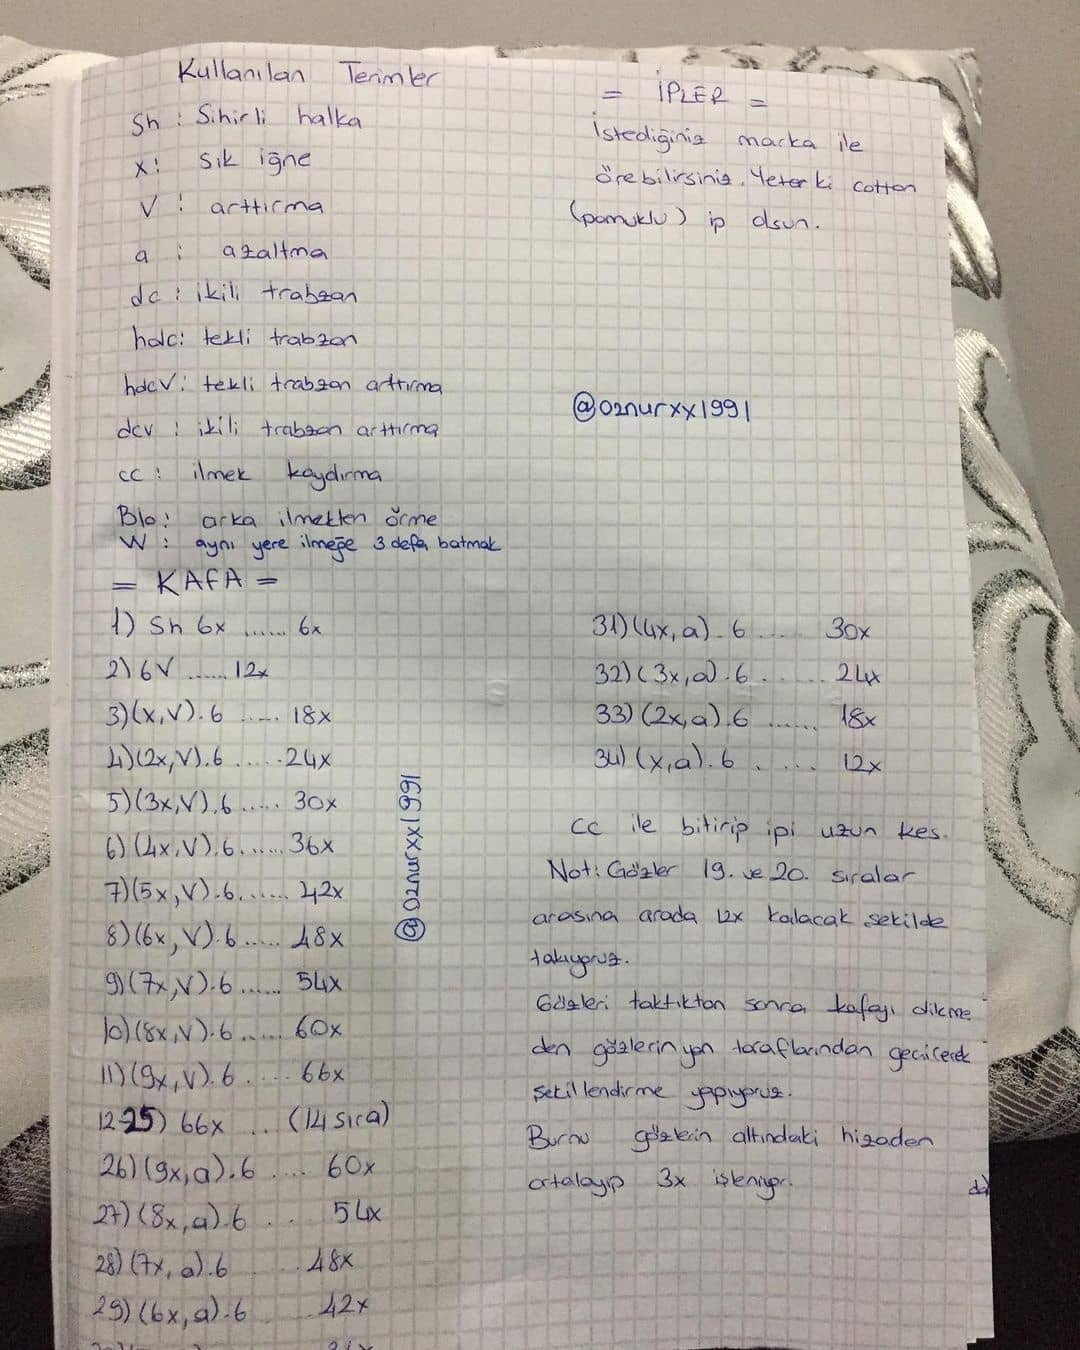 Kullanılan Terimler
Sh : Sihirli halka
x : sık iğne
V : arttırma
a : azaltma
dc : ikili trabzan
hdc : tekli trabzon
hdcV : tekli trabzan arttırma
dcv : ikili trabzan arttırma
cc : ilmek kaydırma
Blo : arka ilmekten örme
W : aynı yere ilmeğe 3 defa batmak
= KAFA =
1) Sh 6x ...... 6x
2) 6V ...... 12x
3) (x,V).6 ..... 18x
4) (2x,V).6 ..... 24x
5) (3x,V).6 ..... 30x
6) (4x,V).6 ...... 36x
7) (5x,V).6 ...... 42x
8) (6x,V).6 ..... 48x
9) (7x,V).6 ...... 54x
10) (8x,V).6 ..... 60x
11) (9x,V).6 .... 66x
12-25) 66x ... (14 sıra)
26) (9x,a).6 .... 60x
27) (8x,a).6 .. 54x
28) (7x,a).6 ... 48x
29) (6x,a).6 .. 42x
@oznurxx1991
= İPLER =
İstediğiniz marka ile
örebilirsiniz. Yeter ki cotton
(pamuklu) ip olsun.
@oznurxx1991
31) (4x,a).6 .... 30x
32) (3x,a).6 ..... 24x
33) (2x,a).6 ...... 18x
34) (x,a).6 .... 12x
cc ile bitirip ipi uzun kes.
Not: Gözler 19. ve 20. sıralar
arasına arada 12x kalacak şekilde
takıyoruz.
Gözleri taktıktan sonra kafayı dikme
den gözlerin yan taraflarından geçilerek
şekillendirme yapıyoruz.
Burnu gözlerin altındaki hizadan
ortalayıp 3x işleniyor.